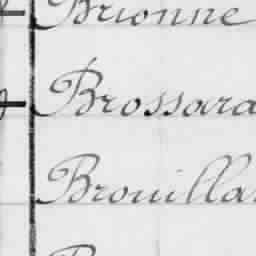 Brionne
Brossard
Brouilla